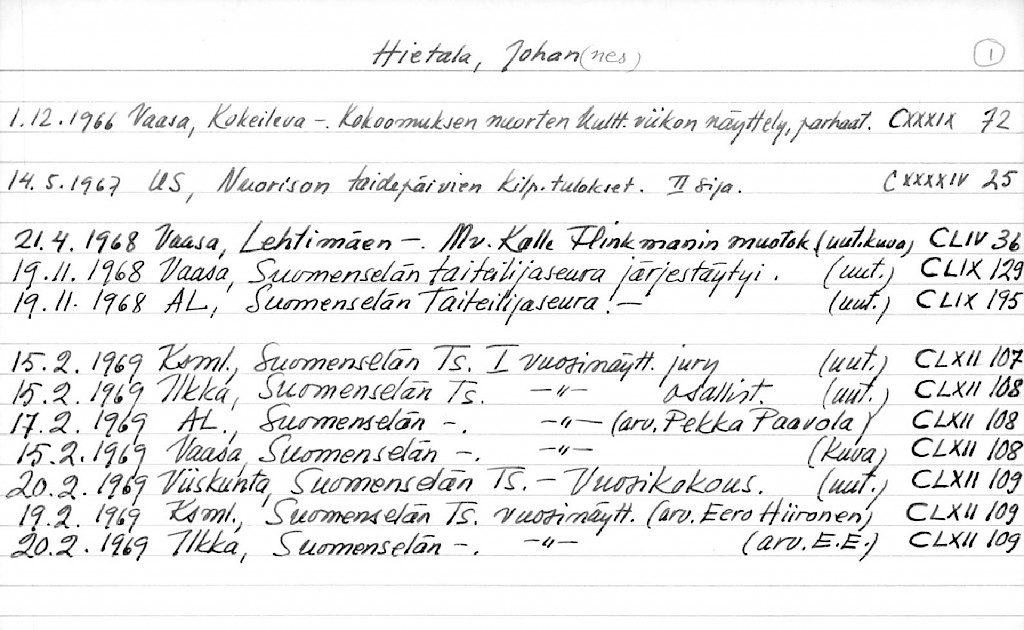 Hietala, Johan(nes) 1
1.12.1966 Vaasa, Kokeileva -. Kokoomuksen nuorten Kultt.viikon näyttely, parhaat. CXXXIX 72
14.5.1967 US, Nuorison taidepäivien kilp.tulokset. II sija. CXXXXIV 25
21.4.1968 Vaasa, Lehtimäen -. Mv. Kalle Flinkmanin muotok (uut.kuva) CLIV 36
19.11.1968 Vaasa, Suomenselän taiteilijaseura järjestäytyi. (uut.) CLIX 129
19.11.1968 AL, Suomenselän Taiteilijaseura! - (uut.) CLIX 195
15.2.1969 Ksml., Suomenselän Ts. I vuosinäytt. jury (uut.) CLXII 107
15.2.1969 Ilkka, Suomenselän Ts. -"- osallist. (uut.) CLXII 108
17.2.1969 AL., Suomenselän -. -"- (arv. Pekka Paavola) CLXII 108
15.2.1969 Vaasa, Suomenselän -. -"- (kuva) CLXII 108
20.2.1969 Viiskunta, Suomenselän Ts. - Vuosikokous. (uut.) CLXII 109
19.2.1969 Ksml., Suomenselän Ts. vuosinäytt. (arv. Eero Hiironen) CLXII 109
20.2.1969 Ilkka, Suomenselän -. -"- (arv. E.E.) CLXII 109